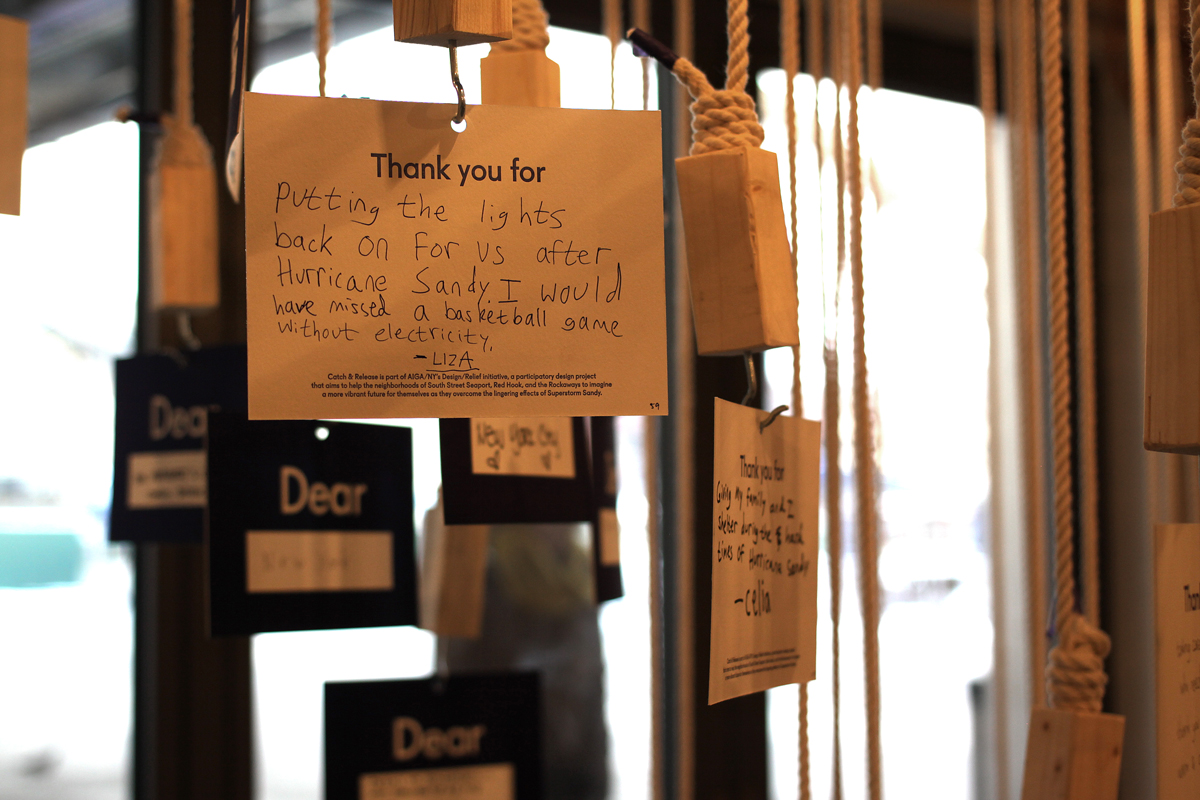 Thank you for
Putting the lights
back on For us after
Hurricane Sandy. I would
have missed a basketball game
without electricity.
- LIZA
Catch & Release is part of AIGA/NY's Design/Relief initiative, a participatory design project
that aims to help the neighborhoods of South Street Seaport, Red Hook, and the Rockaways to imagine
a more vibrant future for themselves as they overcome the lingering effects of Superstorm Sandy.
59
Dear
Dear
New York City
Dear
Thank you for
Giving my family and I
shelter during the harsh
times of Hurricane Sandy
- Celia